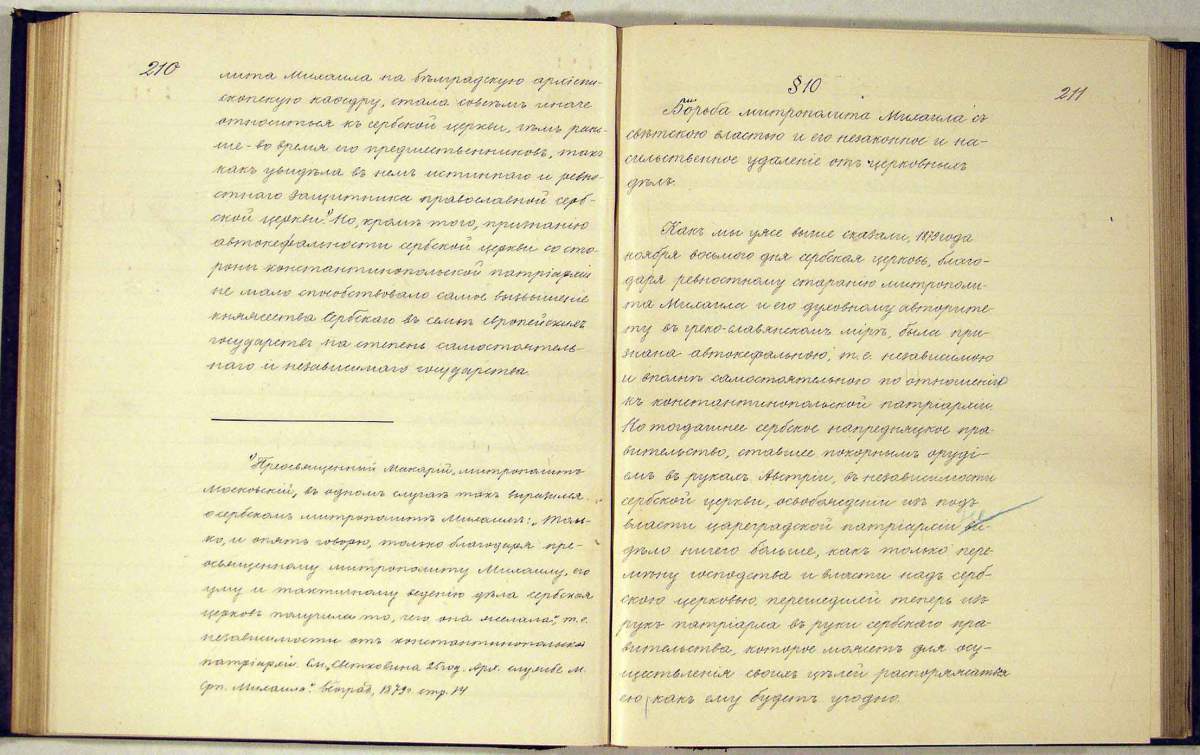 210
лита Михаила на бѣлградскую архіепи-
скопскую каѳедру, стала совсѣмъ иначе
относиться къ сербской церкви, чѣмъ рань-
ше-во время его предшественниковъ, такъ
какъ увидѣла въ немъ истиннаго и ревно-
стнаго защитника православной серб-
ской церкви.¹⁾ Но, кромѣ того, признанію
автокефальности сербской церкви со сто-
роны константинопольской патріархіи
не мало способствовало самое возвышеніе
княжества Сербскаго въ семьѣ европейскихъ
государствъ на степень самостоятель-
наго и независимаго государства.
¹⁾ Преосвященный Макарій, митрополитъ
Московскій, въ одномъ случаѣ такъ выразился
о сербскомъ митрополитѣ Михаилѣ: „Толь-
ко, и опять говорю, только благодаря пре-
освященному митрополиту Михаилу, его
уму и тактичному веденію дѣла сербская
церковь получила то, чего она желала", т.е.
независимости отъ константинопольск.
патріархіи. См. „Светковина 25 год. Арх. службе М.
Срп. Михаила". Београд, 1879г. стр. 14
211
§ 10
Борьба митрополита Михаила съ
свѣтскою властью и его незаконное и на-
сильственное удаленіе отъ церковныхъ
дѣлъ.
Какъ мы уже выше сказали, 1879 года
ноября восьмого дня сербская церковь, благо-
даря ревностному старанію митрополи-
та Михаила и его духовному авторите-
ту въ греко-славянскомъ мірѣ, была при-
знана автокефальною, т.е. независимою
и вполнѣ самостоятельною по отношенію
къ константинопольской патріархіи.
Но тогдашнее сербское напредняцкое пра-
вительство, ставшее покорнымъ оруді-
емъ въ рукахъ Австріи, въ независимости
сербской церкви, освобожденіи изъ подъ
власти цареградской патріархіи ви-
дѣло ничего больше, какъ только пере-
мѣну господства и власти надъ серб-
скою церковью, перешедшей теперь изъ
рукъ патріарха въ руки сербскаго пра-
вительства, которое можетъ для осу-
ществленія своихъ цѣлей распоряжаться
ею, какъ ему будетъ угодно.